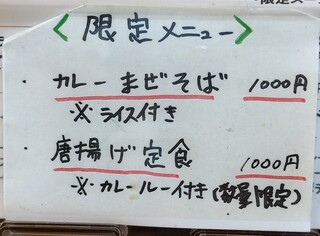 <限定メニュー>
・カレーまぜそば 1000円
※ライス付き
・唐揚げ定食 1000円
※カレールー付き(数量限定)